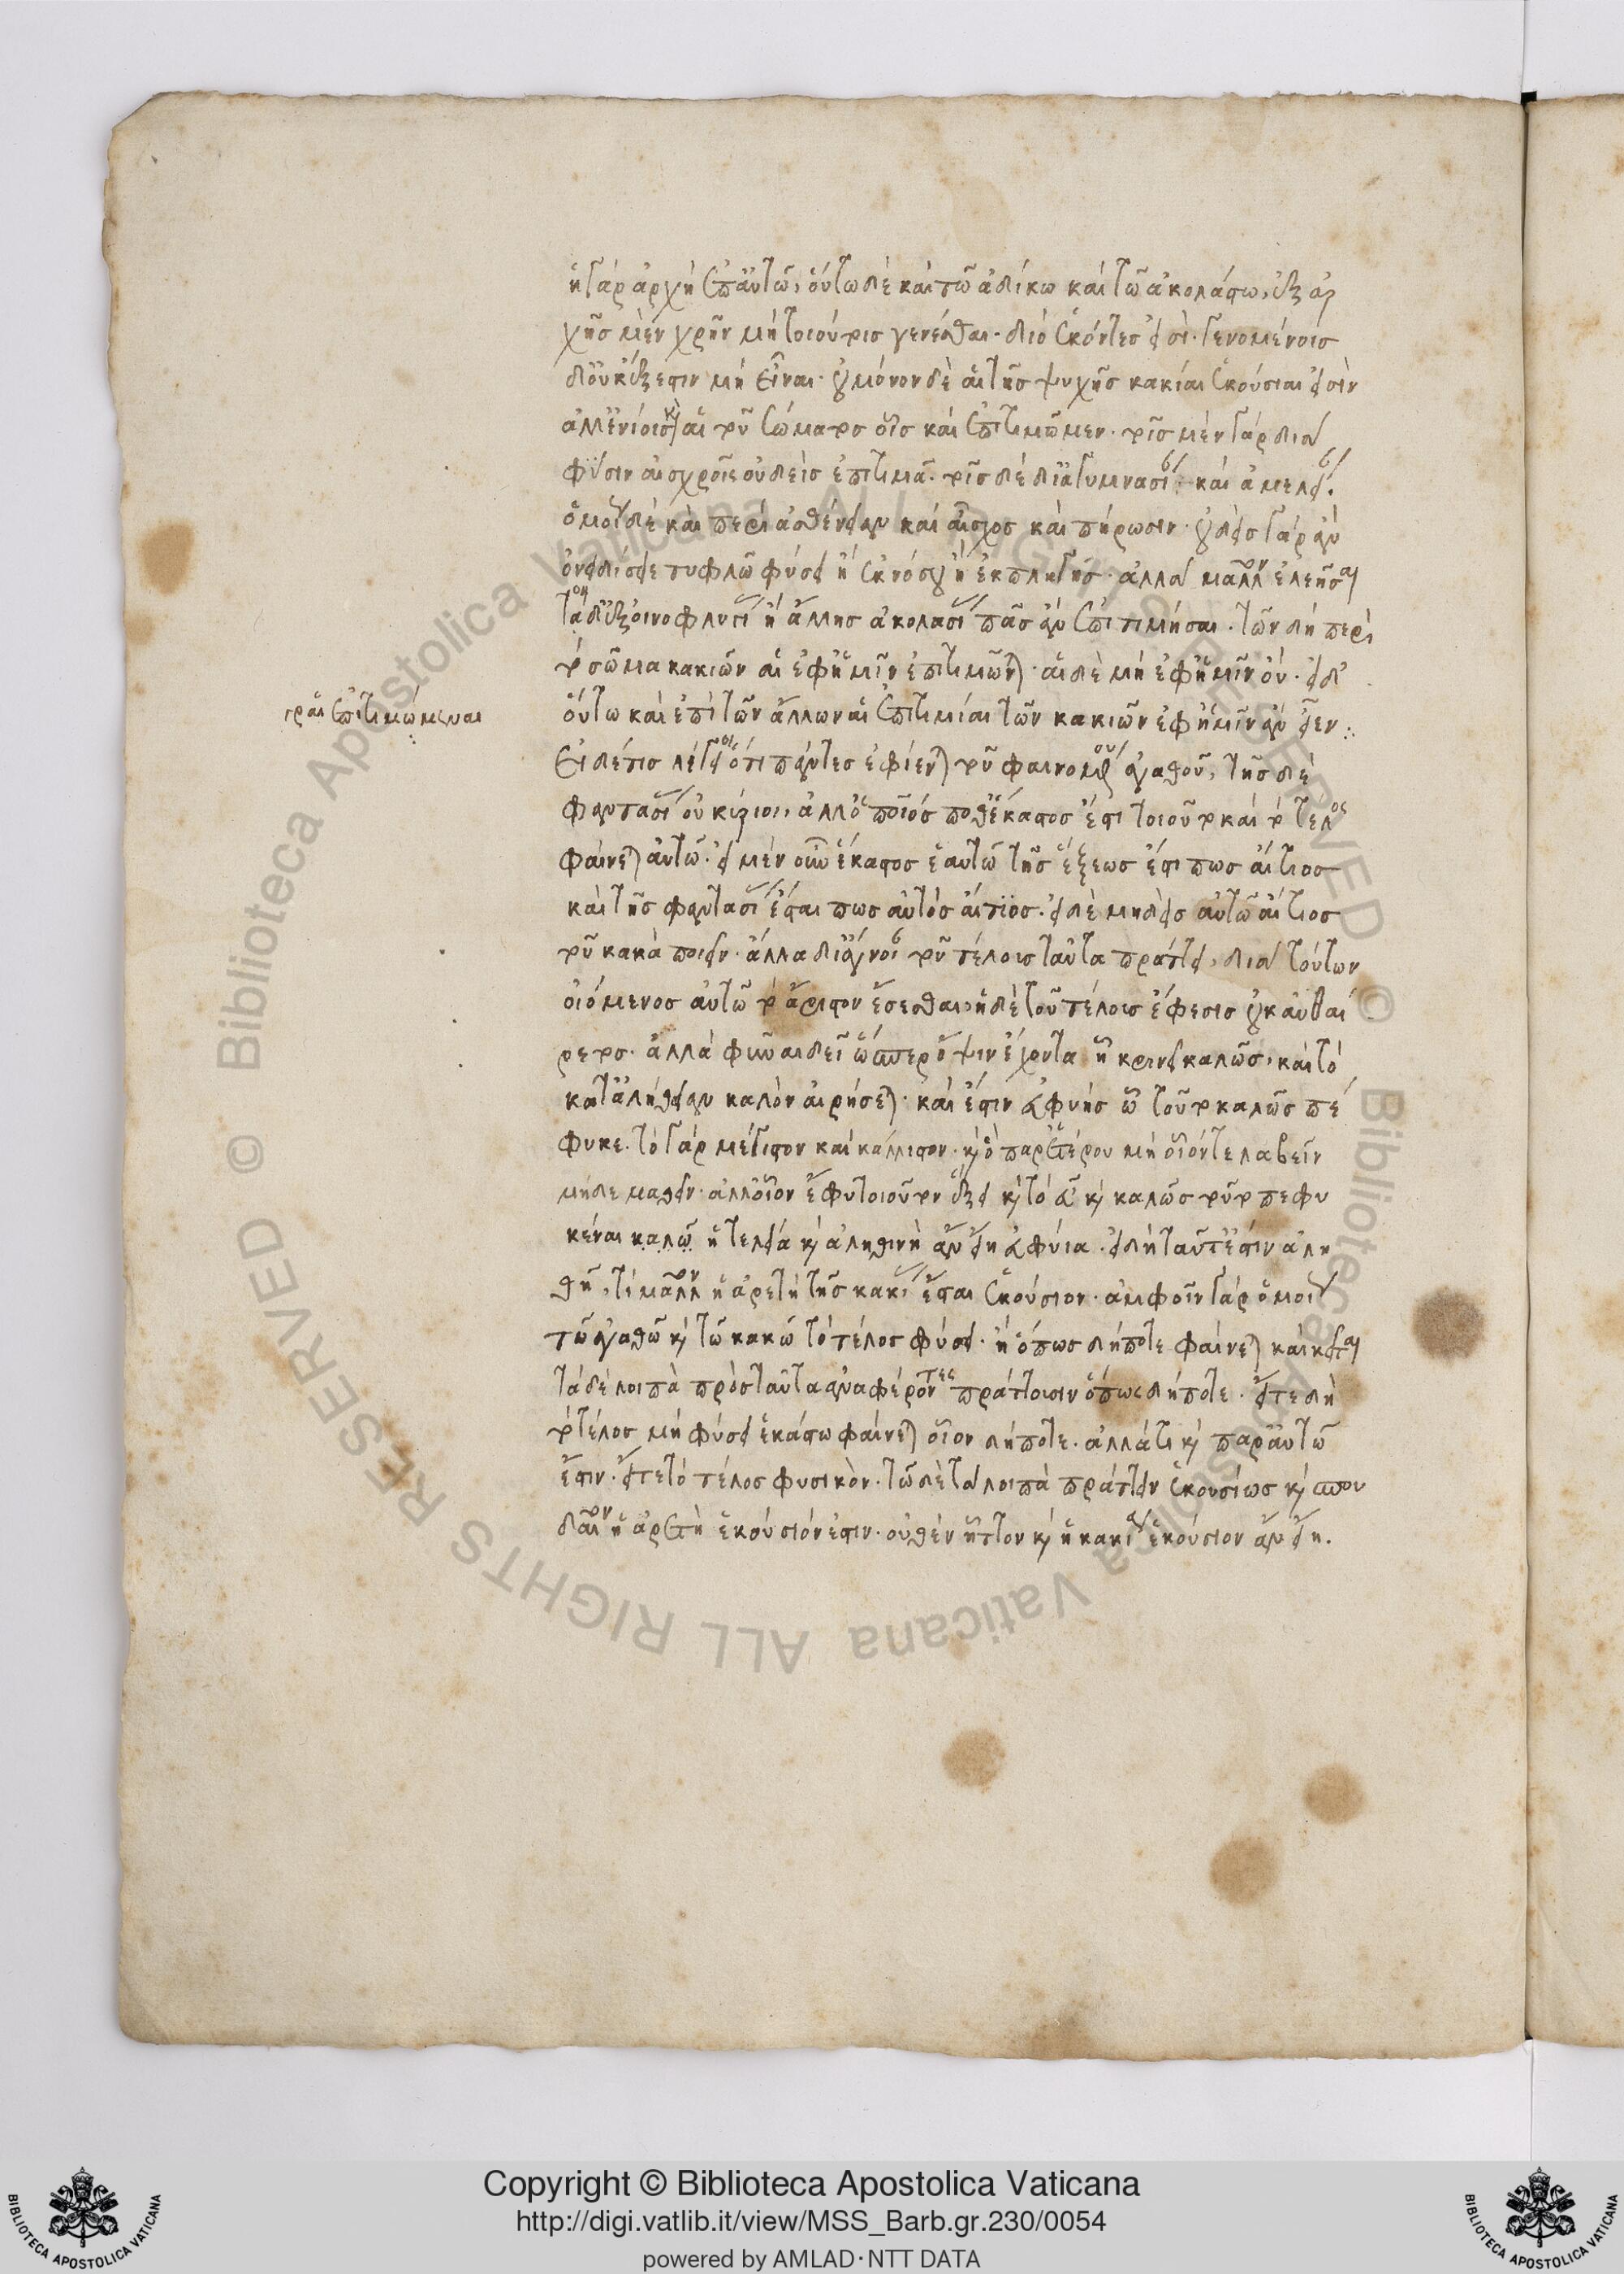 ἡ γὰρ ἀρχὴ ἐπ' αὐτῶ, οὕτω δὲ καὶ τῶ ἀδίκω καὶ τῶ ἀκολάστω, ἐξ ἀρ
χῆς μὲν χρῆν μὴ τοιούτοις γενέσθαι· διὸ ἑκόντες εἰσί· γενομένοις
δ' οὐκ ἔξεστιν μὴ εἶναι· οὐ μόνον δὲ αἱ τῆς ψυχῆς κακίαι ἑκούσιαι εἰσὶν
ἀλλ' ἐνίοις καὶ αἱ τοῦ σώματος οἷς καὶ ἐπιτιμῶμεν· τοῖς μὲν γὰρ διὰ
φύσιν αἰσχροῖς οὐδεὶς ἐπιτιμᾶ· τοῖς δὲ δι' ἀγυμνασίαν καὶ ἀμέλειαν·
ὁμοίως δὲ καὶ περὶ ἀσθένειαν καὶ αἶσχος καὶ πήρωσιν· οὐδεὶς γὰρ ἂν
ὀνειδίσειε τυφλῶ φύσει ἢ ἐκ νόσου ἢ ἐκ πληγῆς· ἀλλὰ μᾶλλον ἐλεῆσαι
τὸν δ' ἐξ οἰνοφλυγίας ἢ ἄλλης ἀκολασίας πᾶς ἂν ἐπιτιμήσαι· τῶν δὴ περὶ
τὸ σῶμα κακιῶν αἱ ἐφ' ἡμῖν ἐπιτιμῶνται· αἱ δὲ μὴ ἐφ' ἡμῖν οὔ· εἰ δ'
οὕτω καὶ ἐπὶ τῶν ἄλλων αἱ ἐπιτιμίαι τῶν κακιῶν ἐφ' ἡμῖν ἂν εἶεν:
αἱ ἐπιτιμώμεναι
Εἰ δέ τις λέγοι ὅτι πάντες ἐφίενται τοῦ φαινομένου ἀγαθοῦ, τῆς δὲ
φαντασίας οὐ κύριοι, ἀλλ' ὁποῖός ποθ' ἕκαστος ἐστι τοιοῦτο καὶ τὸ τέλος
φαίνεται αὐτῶ· εἰ μὲν οὖν ἕκαστος ἑαυτῶ τῆς ἕξεως ἐστι πως αἴτιος
καὶ τῆς φαντασίας ἔσται πως αὐτὸς αἴτιος· εἰ δὲ μηδεὶς αὑτῶ αἴτιος
τοῦ κακὰ ποιεῖν· ἀλλὰ δι' ἄγνοιαν τοῦ τέλους ταῦτα πράττει, διὰ τούτων
οἰόμενος αὑτῶ τὸ ἄριστον ἔσεσθαι· ἡ δὲ τοῦ τέλους ἔφεσις οὐκ αὐθαί
ρετος· ἀλλὰ φῦναι δεῖ ὥσπερ ὄψιν ἔχοντα ἧ κρινεῖ καλῶς, καὶ τὸ
κατ' ἀλήθειαν καλὸν αἱρήσεται· καὶ ἔστιν εὐφυὴς ὧ τοῦτο καλῶς πέ
φυκε· τὸ γὰρ μέγιστον καὶ κάλλιστον· καὶ ὃ παρ' ἑτέρου μὴ οἷόν τε λαβεῖν
μηδὲ μαθεῖν· ἀλλ' οἷον ἔφυ τοιοῦτον ἕξει καὶ τὸ εὖ καὶ καλῶς τοῦτο πεφυ
κέναι καλῶς ἡ τελεία καὶ ἀληθινὴ ἂν εἴη εὐφυΐα· εἰ δὴ ταῦτ' ἐστιν ἀλη
θῆ, τί μᾶλλον ἡ ἀρετὴ τῆς κακίας ἔσται ἑκούσιον· ἀμφοῖν γὰρ ὁμοίως
τῶ ἀγαθῶ καὶ τῶ κακῶ τὸ τέλος φύσει· ἢ ὁπωσδήποτε φαίνεται καὶ κεῖται
τὰ δὲ λοιπὰ πρὸς ταῦτα ἀναφέροντες πράττουσιν ὁπωσδήποτε· εἴτε δὴ
τὸ τέλος μὴ φύσει ἑκάστω φαίνεται οἷον δήποτε· ἀλλά τι καὶ παρ' αὐτῶ
ἐστιν· εἴτε τὸ τέλος φυσικόν· τῶ δὲ τὰ λοιπὰ πράττειν ἑκουσίως καὶ σπου
δαῖον ἡ ἀρετὴ ἑκούσιόν ἐστιν· οὐθὲν ἧττον καὶ ἡ κακία ἑκούσιον ἂν εἴη.
Copyright © Biblioteca Apostolica Vaticana
http://digi.vatlib.it/view/MSS_Barb.gr.230/0054
powered by AMLAD·NTT DATA
BIBLIOTECA APOSTOLICA VATICANA
BIBLIOTECA APOSTOLICA VATICANA
Biblioteca Apostolica Vaticana ALL RIGHTS RESERVED ©
Biblioteca Apostolica Vaticana ALL RIGHTS RESERVED ©